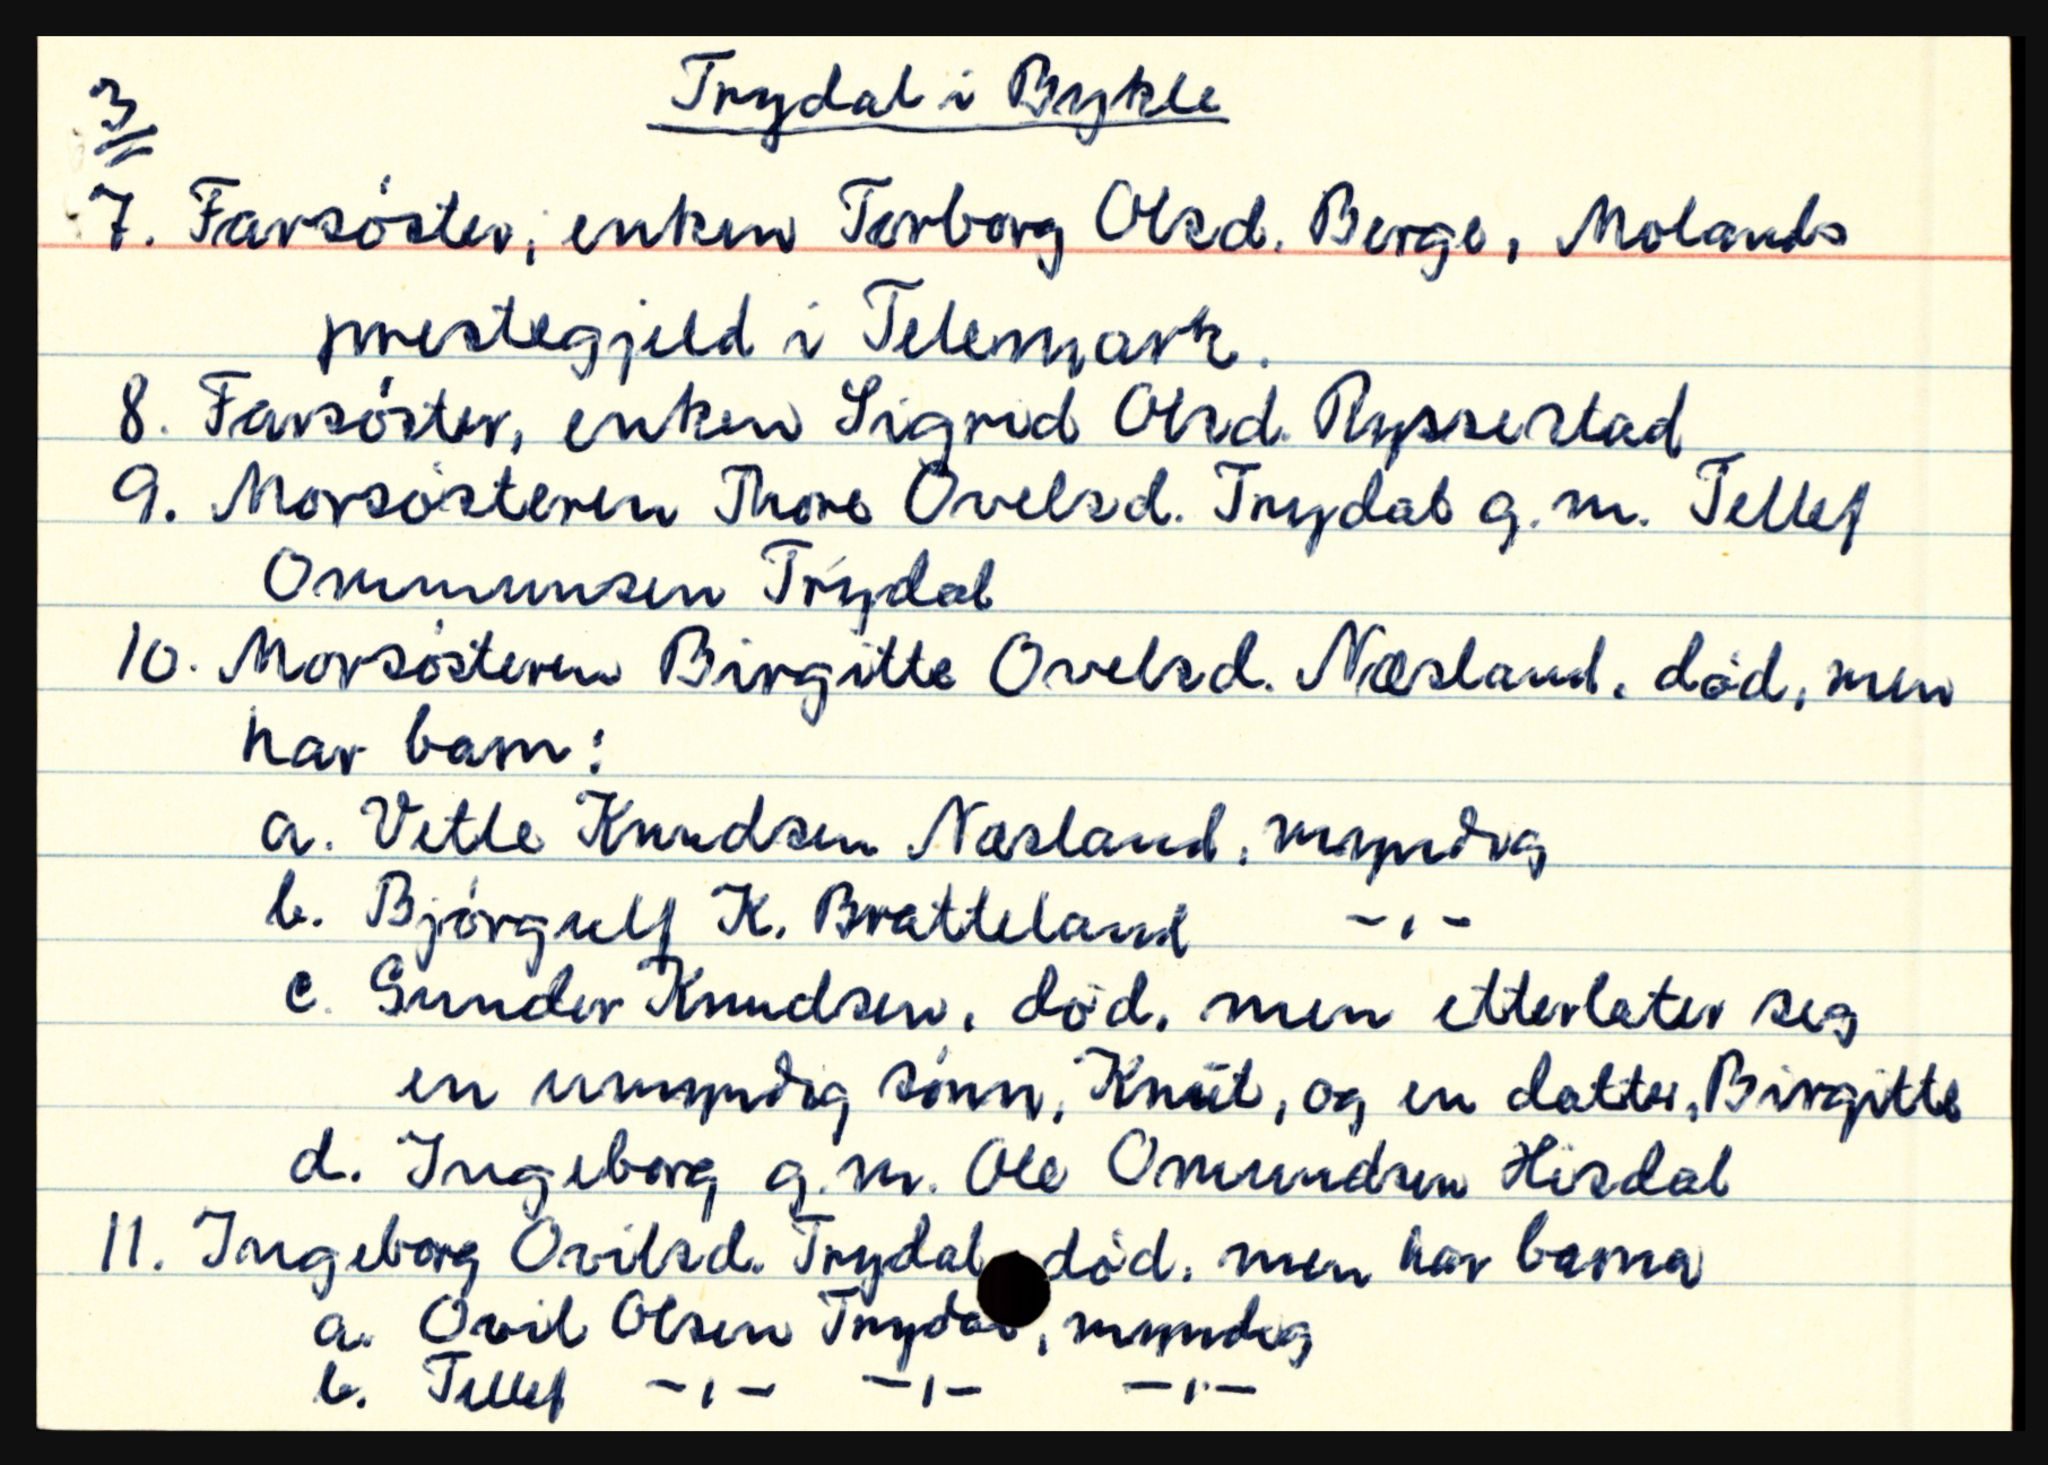 3
Trydal i Bykle
7. Farsøster, enken Torborg Olsd. Berge, Molands
prestegjeld i Telemark.
8. Farsøster, enken Sigrid Olsd. Ryssestad
9. Morsøsteren Thore Ovelsd. Trydal g. m. Tellef
Ommunsen Trydal
10. Morsøsteren Birgitte Ovelsd. Næsland, død, men
har barn:
a. Vetle Knudsen Næsland, myndig
b. Bjørgulf K. Bratteland -,-
c. Gunder Knudsen, død, men etterlater seg
en umyndig sønn, Knut, og en datter, Birgitte
d. Ingeborg g. m. Ole Omundsen Hisdal
11. Ingeborg Ovilsd. Trydal død, men har barna
a. Ovil Olsen Trydal, myndig
b. Tellef -,- -,- -,-